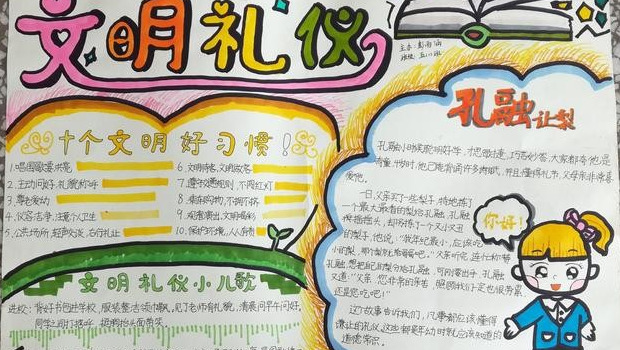 文明礼仪
主办:
班级:
十个文明好习惯!
1.唱国歌要洪亮
2.主动问好,礼貌称呼
3.尊老爱幼
4.仪容洁净,注重个卫生
5.公共场所,轻声交谈,右行礼让
6.文明待客,文明做客
7.遵守交通规则,不闯红灯
8.乘车购物,不拥不挤
9.观看演出,文明喝彩
10.保护环境,人人有责
文明礼仪小儿歌
进校:背好书包进学校,服装整洁领巾飘。见了老师有礼貌,清晨问早午问好,
同学之间打招呼,面带笑。
孔融让梨
孔融小时候聪明好学,才思敏捷,巧言妙答,大家都夸他是
奇童。4岁时,他已能背诵许多诗赋,并且懂得礼节,父母亲非常喜
爱他。
一日,父亲买了一些梨子,特地拣了
一个最大最者的梨给孔融,孔融
摇摇头,却另拣了一个又小又丑
的梨子,他说:“我年纪最小,应该吃
小的梨,那个梨就给哥哥吧。”父亲听完,连忙称赞
孔融,
又道:“父亲
还是您吃吧!”
这个故事告诉我们,凡事都应该懂得
谦让的礼仪。这些都是年幼时就应该知道的
道德常识。
你好!